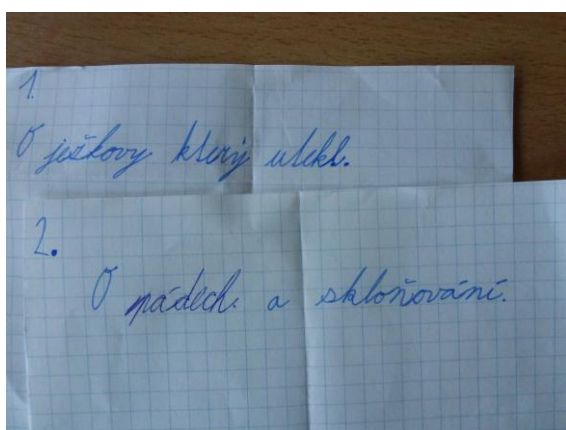 1.
O ježkovy který utekl.
2.
O pádech. a skloňování.